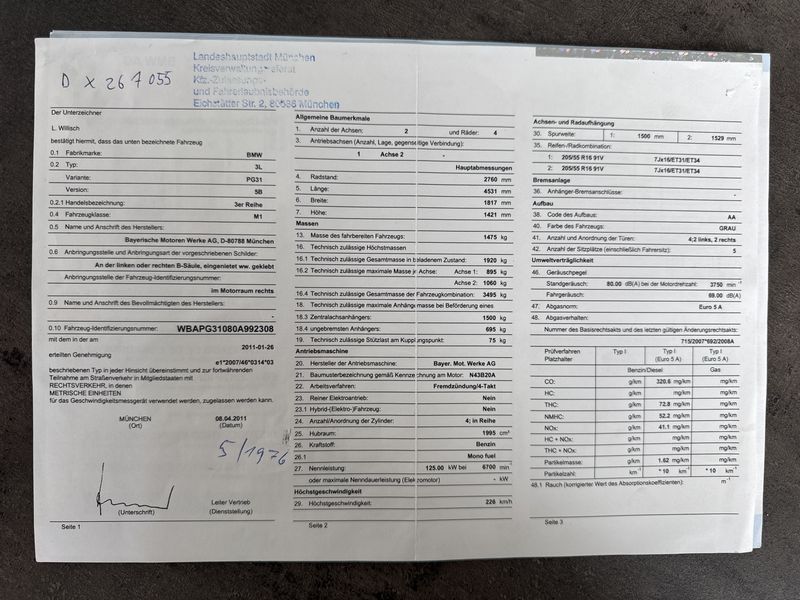 D X 267055
Landeshauptstadt München
Kreisverwaltungsreferat
Kfz.-Zulassungs-
und Fahrerlaubnisbehörde
Eichstätter Str. 2, 80686 München
Der Unterzeichner
L. Willisch
bestätigt hiermit, dass das unten bezeichnete Fahrzeug
0.1 Fabrikmarke: BMW
0.2 Typ: 3L
Variante: PG31
Version: 5B
0.2.1 Handelsbezeichnung: 3er Reihe
0.4 Fahrzeugklasse: M1
0.5 Name und Anschrift des Herstellers:
Bayerische Motoren Werke AG, D-80788 München
0.6 Anbringungsstelle und Anbringungsart der vorgeschriebenen Schilder:
An der linken oder rechten B-Säule, eingenietet ww. geklebt
Anbringungsstelle der Fahrzeug-Identifizierungsnummer:
im Motorraum rechts
0.9 Name und Anschrift des Bevollmächtigten des Herstellers:
-
0.10 Fahrzeug-Identifizierungsnummer: WBAPG31080A992308
mit dem in der am
2011-01-26
erteilten Genehmigung
e1*2007/46*0314*03
beschriebenen Typ in jeder Hinsicht übereinstimmt und zur fortwährenden
Teilnahme am Straßenverkehr in Mitgliedstaaten mit
RECHTSVERKEHR, in denen
METRISCHE EINHEITEN
für das Geschwindigkeitsmessgerät verwendet werden, zugelassen werden kann.
MÜNCHEN 08.04.2011
(Ort) (Datum)
5/1976
Leiter Vertrieb
(Unterschrift) (Dienststellung)
Seite 1
Allgemeine Baumerkmale
1. Anzahl der Achsen: 2 und Räder: 4
3. Antriebsachsen (Anzahl, Lage, gegenseitige Verbindung):
1 Achse 2 -
Hauptabmessungen
4. Radstand: 2760 mm
5. Länge: 4531 mm
6. Breite: 1817 mm
7. Höhe: 1421 mm
Massen
13. Masse des fahrbereiten Fahrzeugs: 1475 kg
16. Technisch zulässige Höchstmassen
16.1 Technisch zulässige Gesamtmasse in beladenem Zustand: 1920 kg
16.2 Technisch zulässige maximale Masse je Achse: Achse 1: 895 kg
Achse 2: 1060 kg
16.4 Technisch zulässige Gesamtmasse der Fahrzeugkombination: 3495 kg
18. Technisch zulässige maximale Anhängemasse bei Beförderung eines
18.3 Zentralachsanhängers: 1500 kg
18.4 ungebremsten Anhängers: 695 kg
19. Technisch zulässige Stützlast am Kupplungspunkt: 75 kg
Antriebsmaschine
20. Hersteller der Antriebsmaschine: Bayer. Mot. Werke AG
21. Baumusterbezeichnung gemäß Kennzeichnung am Motor: N43B20A
22. Arbeitsverfahren: Fremdzündung/4-Takt
23. Reiner Elektroantrieb: Nein
23.1 Hybrid-(Elektro-)Fahrzeug: Nein
24. Anzahl/Anordnung der Zylinder: 4; in Reihe
25. Hubraum: 1995 cm³
26. Kraftstoff: Benzin
26.1 Mono fuel
27. Nennleistung: 125.00 kW bei 6700 min⁻¹
oder maximale Nenndauerleistung (Elektromotor) - kW
Höchstgeschwindigkeit
29. Höchstgeschwindigkeit: 226 km/h
Seite 2
Achsen- und Radaufhängung
30. Spurweite: 1: 1500 mm 2: 1529 mm
35. Reifen-/Radkombination:
1: 205/55 R16 91V 7Jx16/ET31/ET34
2: 205/55 R16 91V 7Jx16/ET31/ET34
Bremsanlage
36. Anhänger-Bremsanschlüsse: -
Aufbau
38. Code des Aufbaus: AA
40. Farbe des Fahrzeugs: GRAU
41. Anzahl und Anordnung der Türen: 4;2 links, 2 rechts
42. Anzahl der Sitzplätze (einschließlich Fahrersitz): 5
Umweltverträglichkeit
46. Geräuschpegel
Standgeräusch: 80.00 dB(A) bei der Motordrehzahl: 3750 min⁻¹
Fahrgeräusch: 69.00 dB(A)
47. Abgasnorm: Euro 5 A
48. Abgasverhalten:
Nummer des Basisrechtsakts und des letzten gültigen Änderungsrechtsakts:
715/2007*692/2008A
Prüfverfahren Typ I Typ I Typ I
Platzhalter (Euro 5 A) (Euro 5 A)
Benzin/Diesel Gas
CO: g/km 320.6 mg/km mg/km
HC: g/km mg/km mg/km
THC: g/km 72.8 mg/km mg/km
NMHC: g/km 52.2 mg/km mg/km
NOx: g/km 41.1 mg/km mg/km
HC + NOx: g/km mg/km mg/km
THC + NOx: g/km mg/km mg/km
Partikelmasse: g/km 1.62 mg/km mg/km
Partikelzahl: km⁻¹ * 10 km⁻¹ * 10 km⁻¹
48.1 Rauch (korrigierter Wert des Absorptionskoeffizienten): m⁻¹
Seite 3